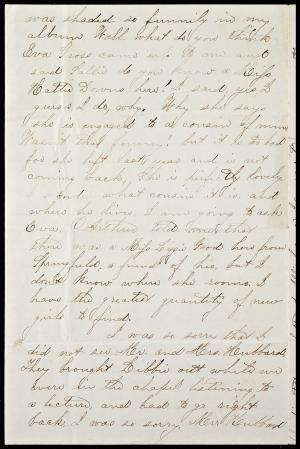 was shaded so funnily in my
album. Well what do you think
Eva Cross came up to me and
said Hattie do you know a Miss
Hattie Downs here. I said yes I
guess I do, why. Why she says
she is engaged to a cousin of mine
Wasn't that funny! but it is too bad
for she left last year and is not
coming back. She is perfectly lovely
I what cousin it is, and
where he lives. I am going to ask
Eva. Arthur told me that
there was a Miss Good here from
Springfield, a friend of his, but I
don't know where she rooms. I
have the greatest quantity of new
girls to find.
I was so sorry that I
did not see Mr. and Mrs. Hubbard.
They brought Libbie out while we
were in the chapel listening to
a lecture, and had to go right
back. I was so sorry. Mrs Hubbard